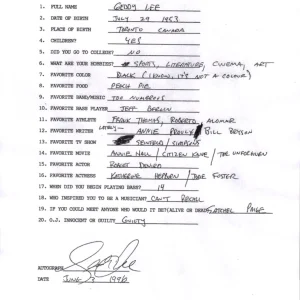 1. FULL NAME GEDDY LEE
2. DATE OF BIRTH JULY 29 1953
3. PLACE OF BIRTH TORONTO CANADA
4. CHILDREN? YES
5. DID YOU GO TO COLLEGE? NO
6. WHAT ARE YOUR HOBBIES? SPORTS, LITERATURE, CINEMA, ART
7. FAVORITE COLOR BLACK (I KNOW, IT'S NOT A COLOUR)
8. FAVORITE FOOD PEACH PIE
9. FAVORITE BAND/MUSIC? TOO NUMEROUS
10. FAVORITE BASS PLAYER JEFF BERLIN
11. FAVORITE ATHLETE FRANK THOMAS, ROBERTO ALOMAR
12. FAVORITE WRITER LATELY- ANNIE PROULX, BILL BRYSON
13. FAVORITE TV SHOW SEINFELD, SIMPSONS
14. FAVORITE MOVIE ANNIE HALL / CITIZEN KANE / THE UNFORGIVEN
15. FAVORITE ACTOR ROBERT DENIRO
16. FAVORITE ACTRESS KATHERINE HEPBURN / JODIE FOSTER
17. WHEN DID YOU BEGIN PLAYING BASS? 14
18. WHO INSPIRED YOU TO BE A MUSICIAN? CAN'T RECALL
19. IF YOU COULD MEET ANYONE WHO WOULD IT BE? (ALIVE OR DEAD) SATCHEL PAIGE
20. O.J. INNOCENT OR GUILTY GUILTY
AUTOGRAPH Geddy Lee
DATE JUNE 1996